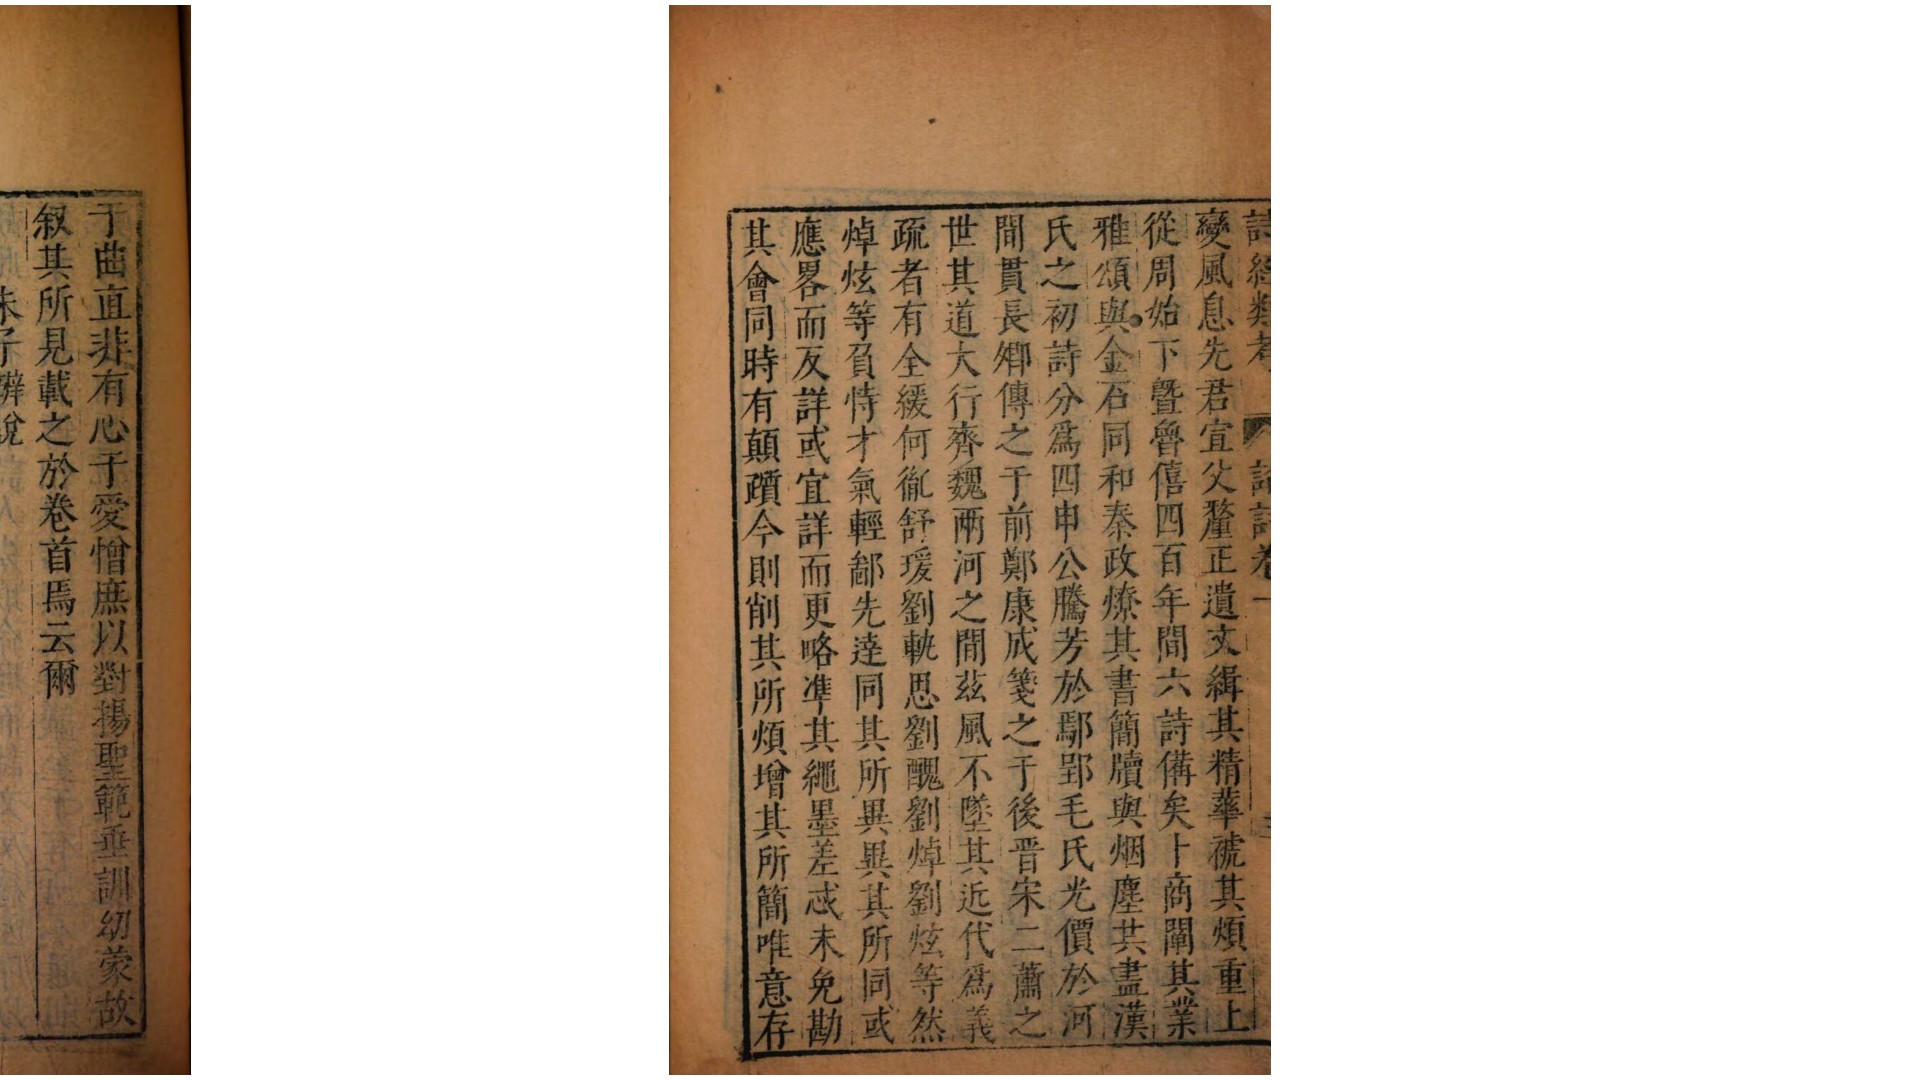 詩經類考　論詩卷一
變風息先君宣父釐正遺文緝其精華褫其煩重上
從周始下暨魯僖四百年間六詩備矣卜商闡其業
雅頌與金石同和秦政燎其書簡牘與烟塵共盡漢
氏之初詩分爲四申公騰芳於鄢郢毛氏光價於河
間貫長卿傳之于前鄭康成箋之于後晋宋二蕭之
世其道大行齊魏兩河之間茲風不墜其近代爲義
疏者有全緩何胤舒瑗劉軌思劉醜劉焯劉炫等然
焯炫等負恃才氣輕鄙先達同其所異異其所同或
應畧而反詳或宜詳而更略準其繩墨差忒未免勘
其會同時有顛躓今則削其所煩增其所簡唯意存
于曲直非有心于愛憎庶以對揚聖範垂訓幼蒙故
叙其所見載之於卷首焉云爾
朱子辯說